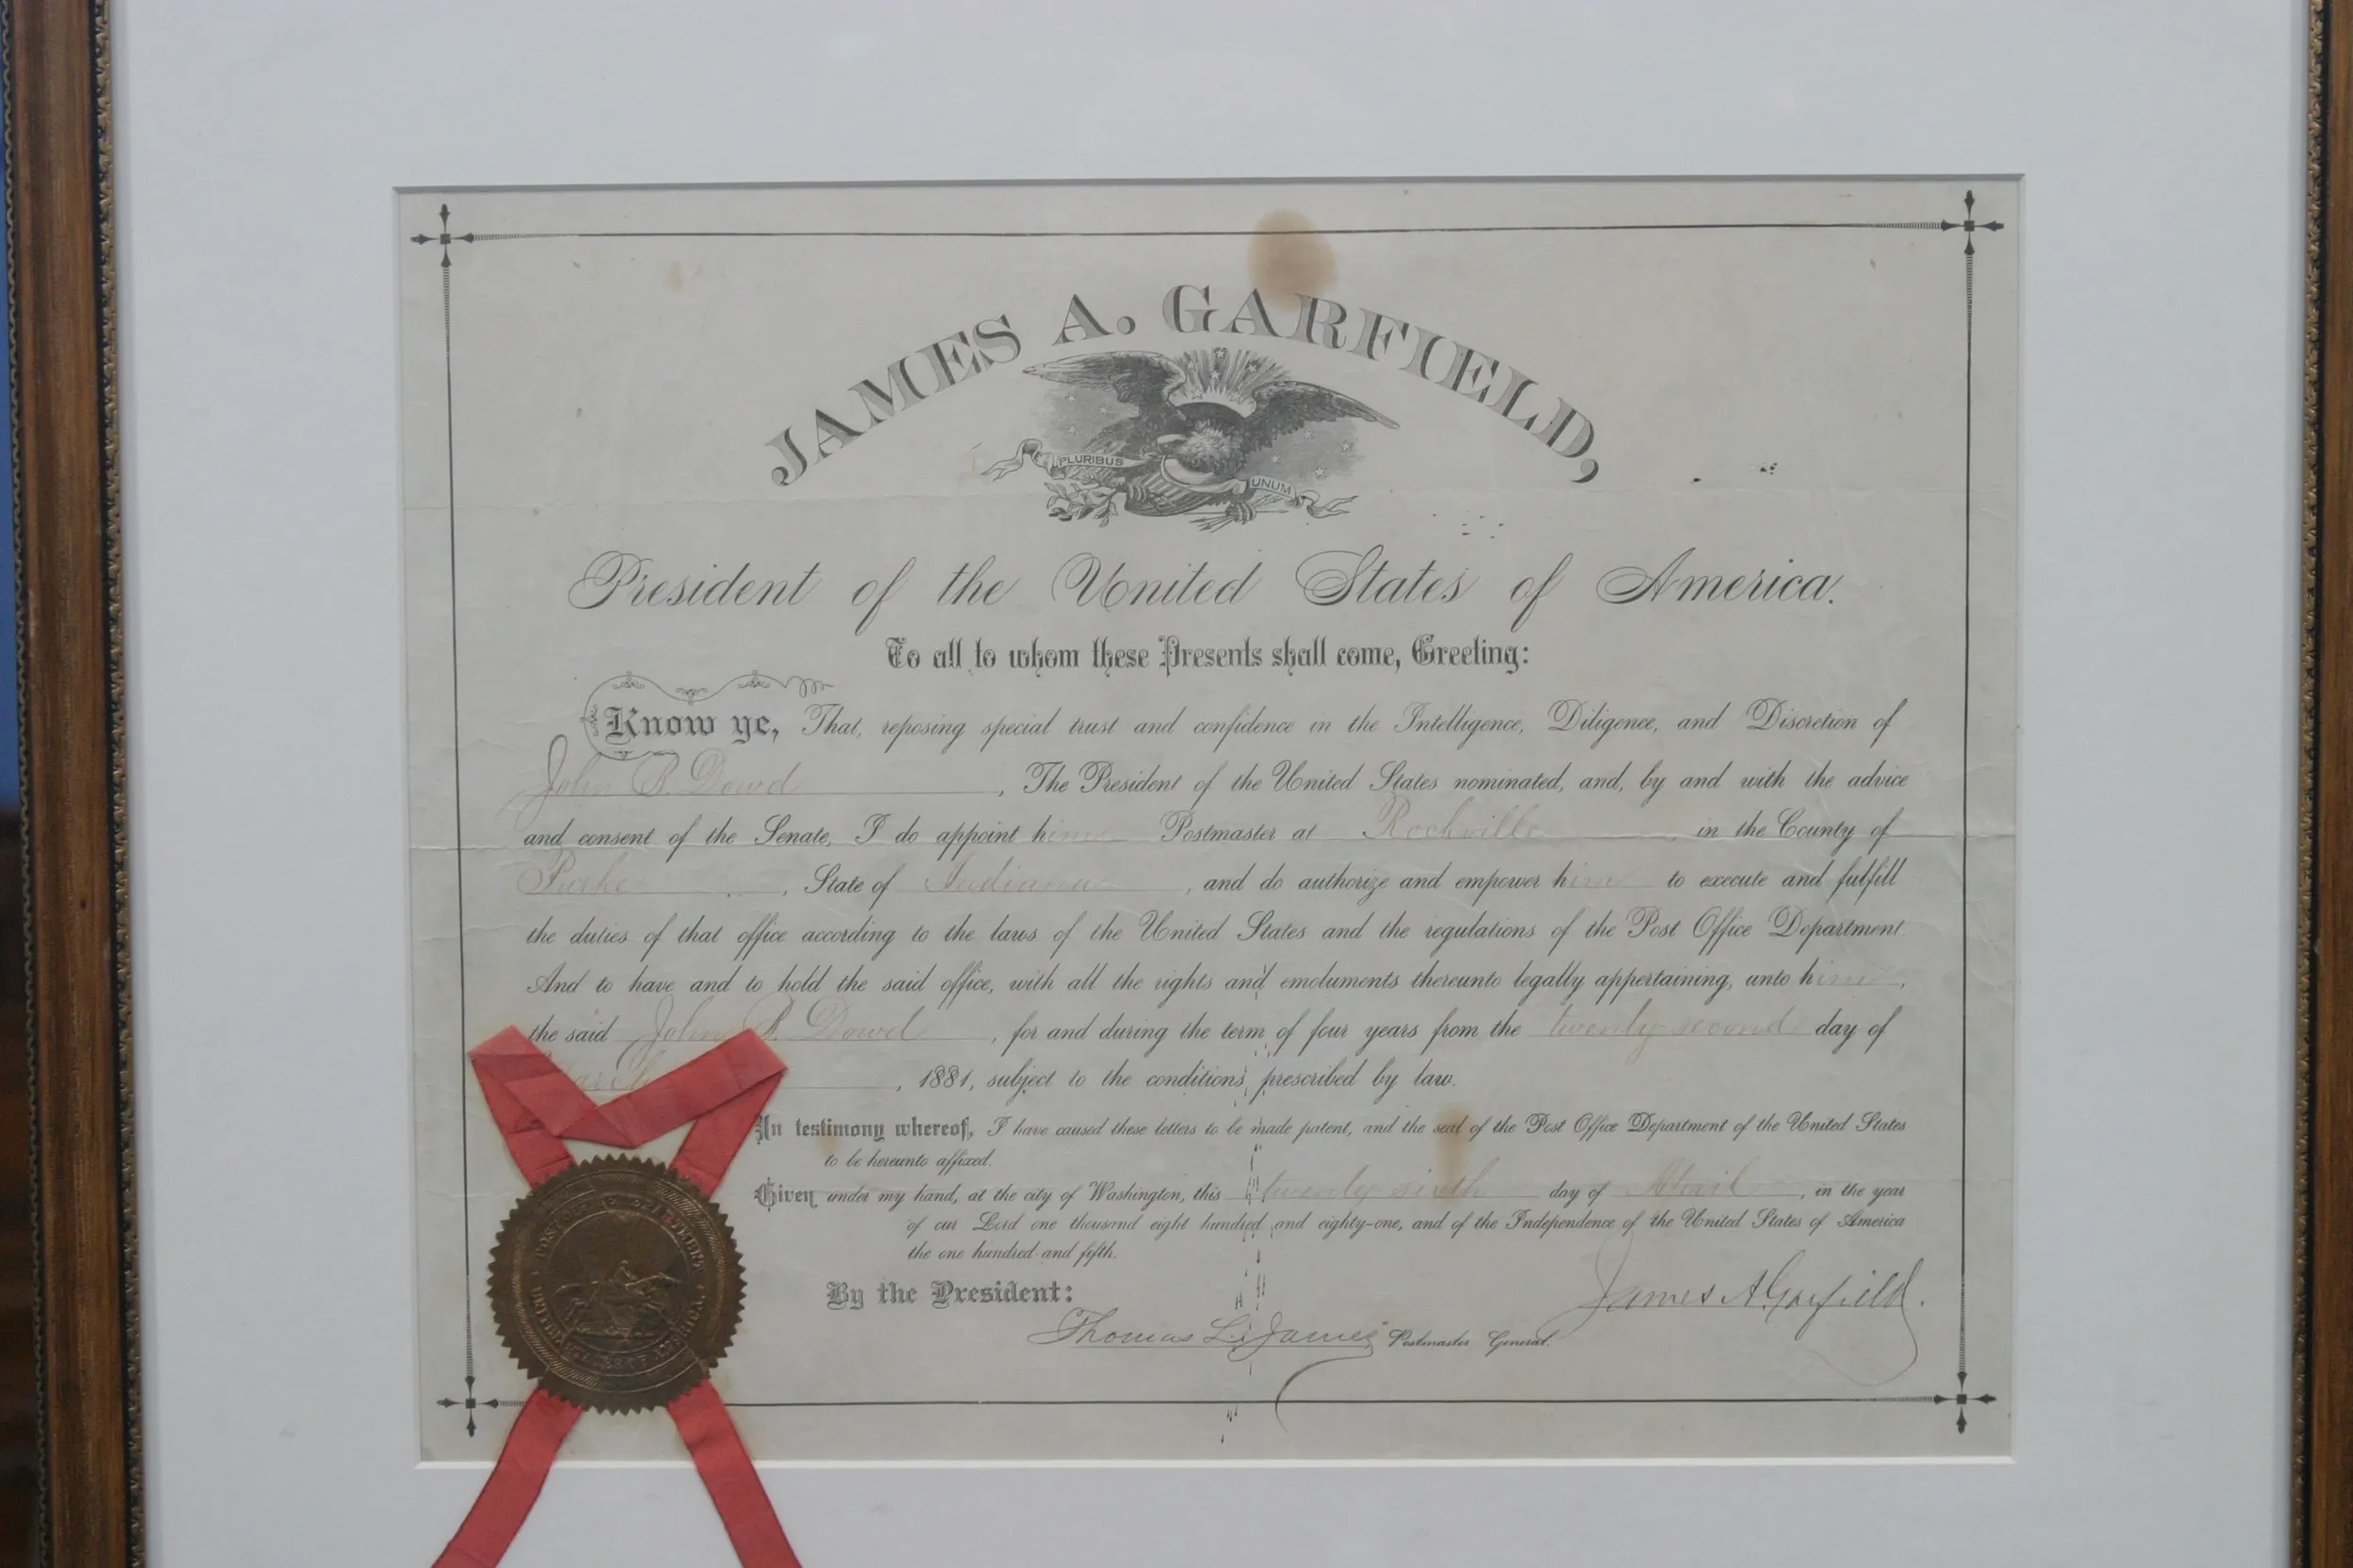 JAMES A. GARFIELD,
PLURIBUS UNUM
President of the United States of America.
To all to whom these Presents shall come, Greeting:
Know ye, That, reposing special trust and confidence in the Intelligence, Diligence, and Discretion of
John B. Dowd, The President of the United States nominated, and, by and with the advice
and consent of the Senate, I do appoint him Postmaster at Rockville in the County of
Parke, State of Indiana, and do authorize and empower him to execute and fulfill
the duties of that office according to the laws of the United States and the regulations of the Post Office Department.
And to have and to hold the said office, with all the rights and emoluments thereunto legally appertaining, unto him,
the said John B. Dowd, for and during the term of four years from the twenty-second day of
March, 1881, subject to the conditions prescribed by law.
In testimony whereof, I have caused these letters to be made patent, and the seal of the Post Office Department of the United States
to be hereunto affixed.
Given under my hand, at the city of Washington, this twenty sixth day of April, in the year
of our Lord one thousand eight hundred and eighty-one, and of the Independence of the United States of America
the one hundred and fifth.
By the President:
James A. Garfield.
Thomas L. James Postmaster General.
POST OFFICE DEPARTMENT
UNITED STATES OF AMERICA